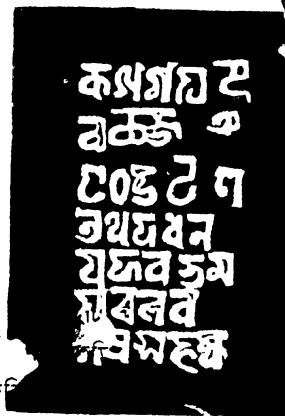 ক খ গ ঘ ঙ
চ ছ জ ঞ
ট ঠ ড ঢ ণ
ত থ দ ধ ন
প ফ ব ভ ম
য ৰ ল ৱ
ষ স হ ক্ষ